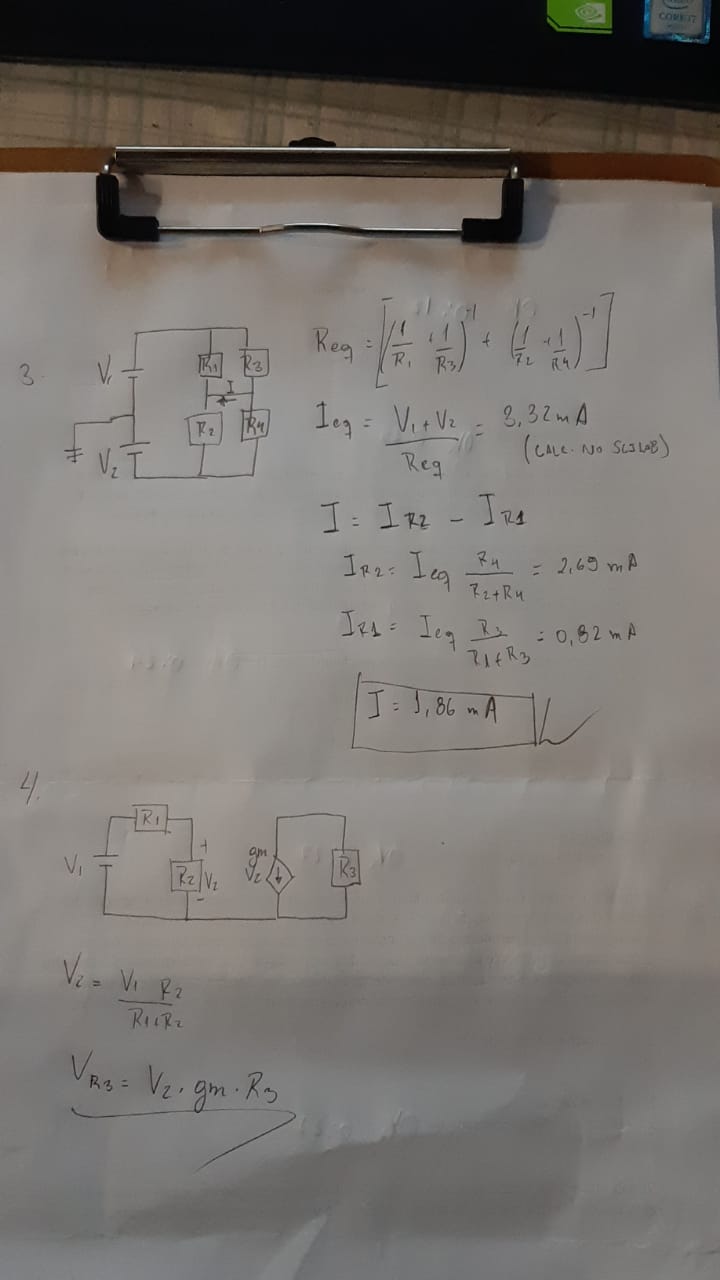 CORE i7
3.
V1
V2
R1
R3
I
R2
R4
Req = [(1/R1 + 1/R3)^-1 + (1/R2 + 1/R4)^-1]
Ieq = V1 + V2 / Req = 3,32 mA
(CALC. NO SCILAB)
I = IR2 - IR1
IR2 = Ieq R4 / R2+R4 = 2,69 mA
IR1 = Ieq R3 / R1+R3 = 0,82 mA
I = 1,86 mA
4.
R1
V1
+
R2
V2
-
gm
V2
R3
V2 = V1 R2 / R1+R2
VR3 = V2 . gm . R3